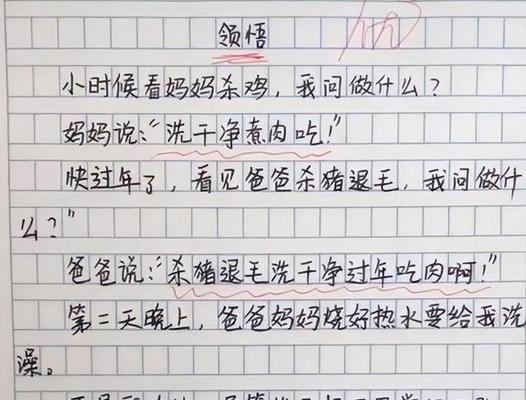 领悟
优
小时候看妈妈杀鸡，我问做什么？
妈妈说：“洗干净煮肉吃！”
快过年了，看见爸爸杀猪退毛，我问做什
么？”
爸爸说：“杀猪退毛洗干净过年吃肉啊！”
第二天晚上，爸爸妈妈烧好热水要给我洗
澡。